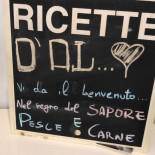 RICETTE
D'AL...
Vi dà il benvenuto...
Nel segno del SAPORE
PESCE E CARNE